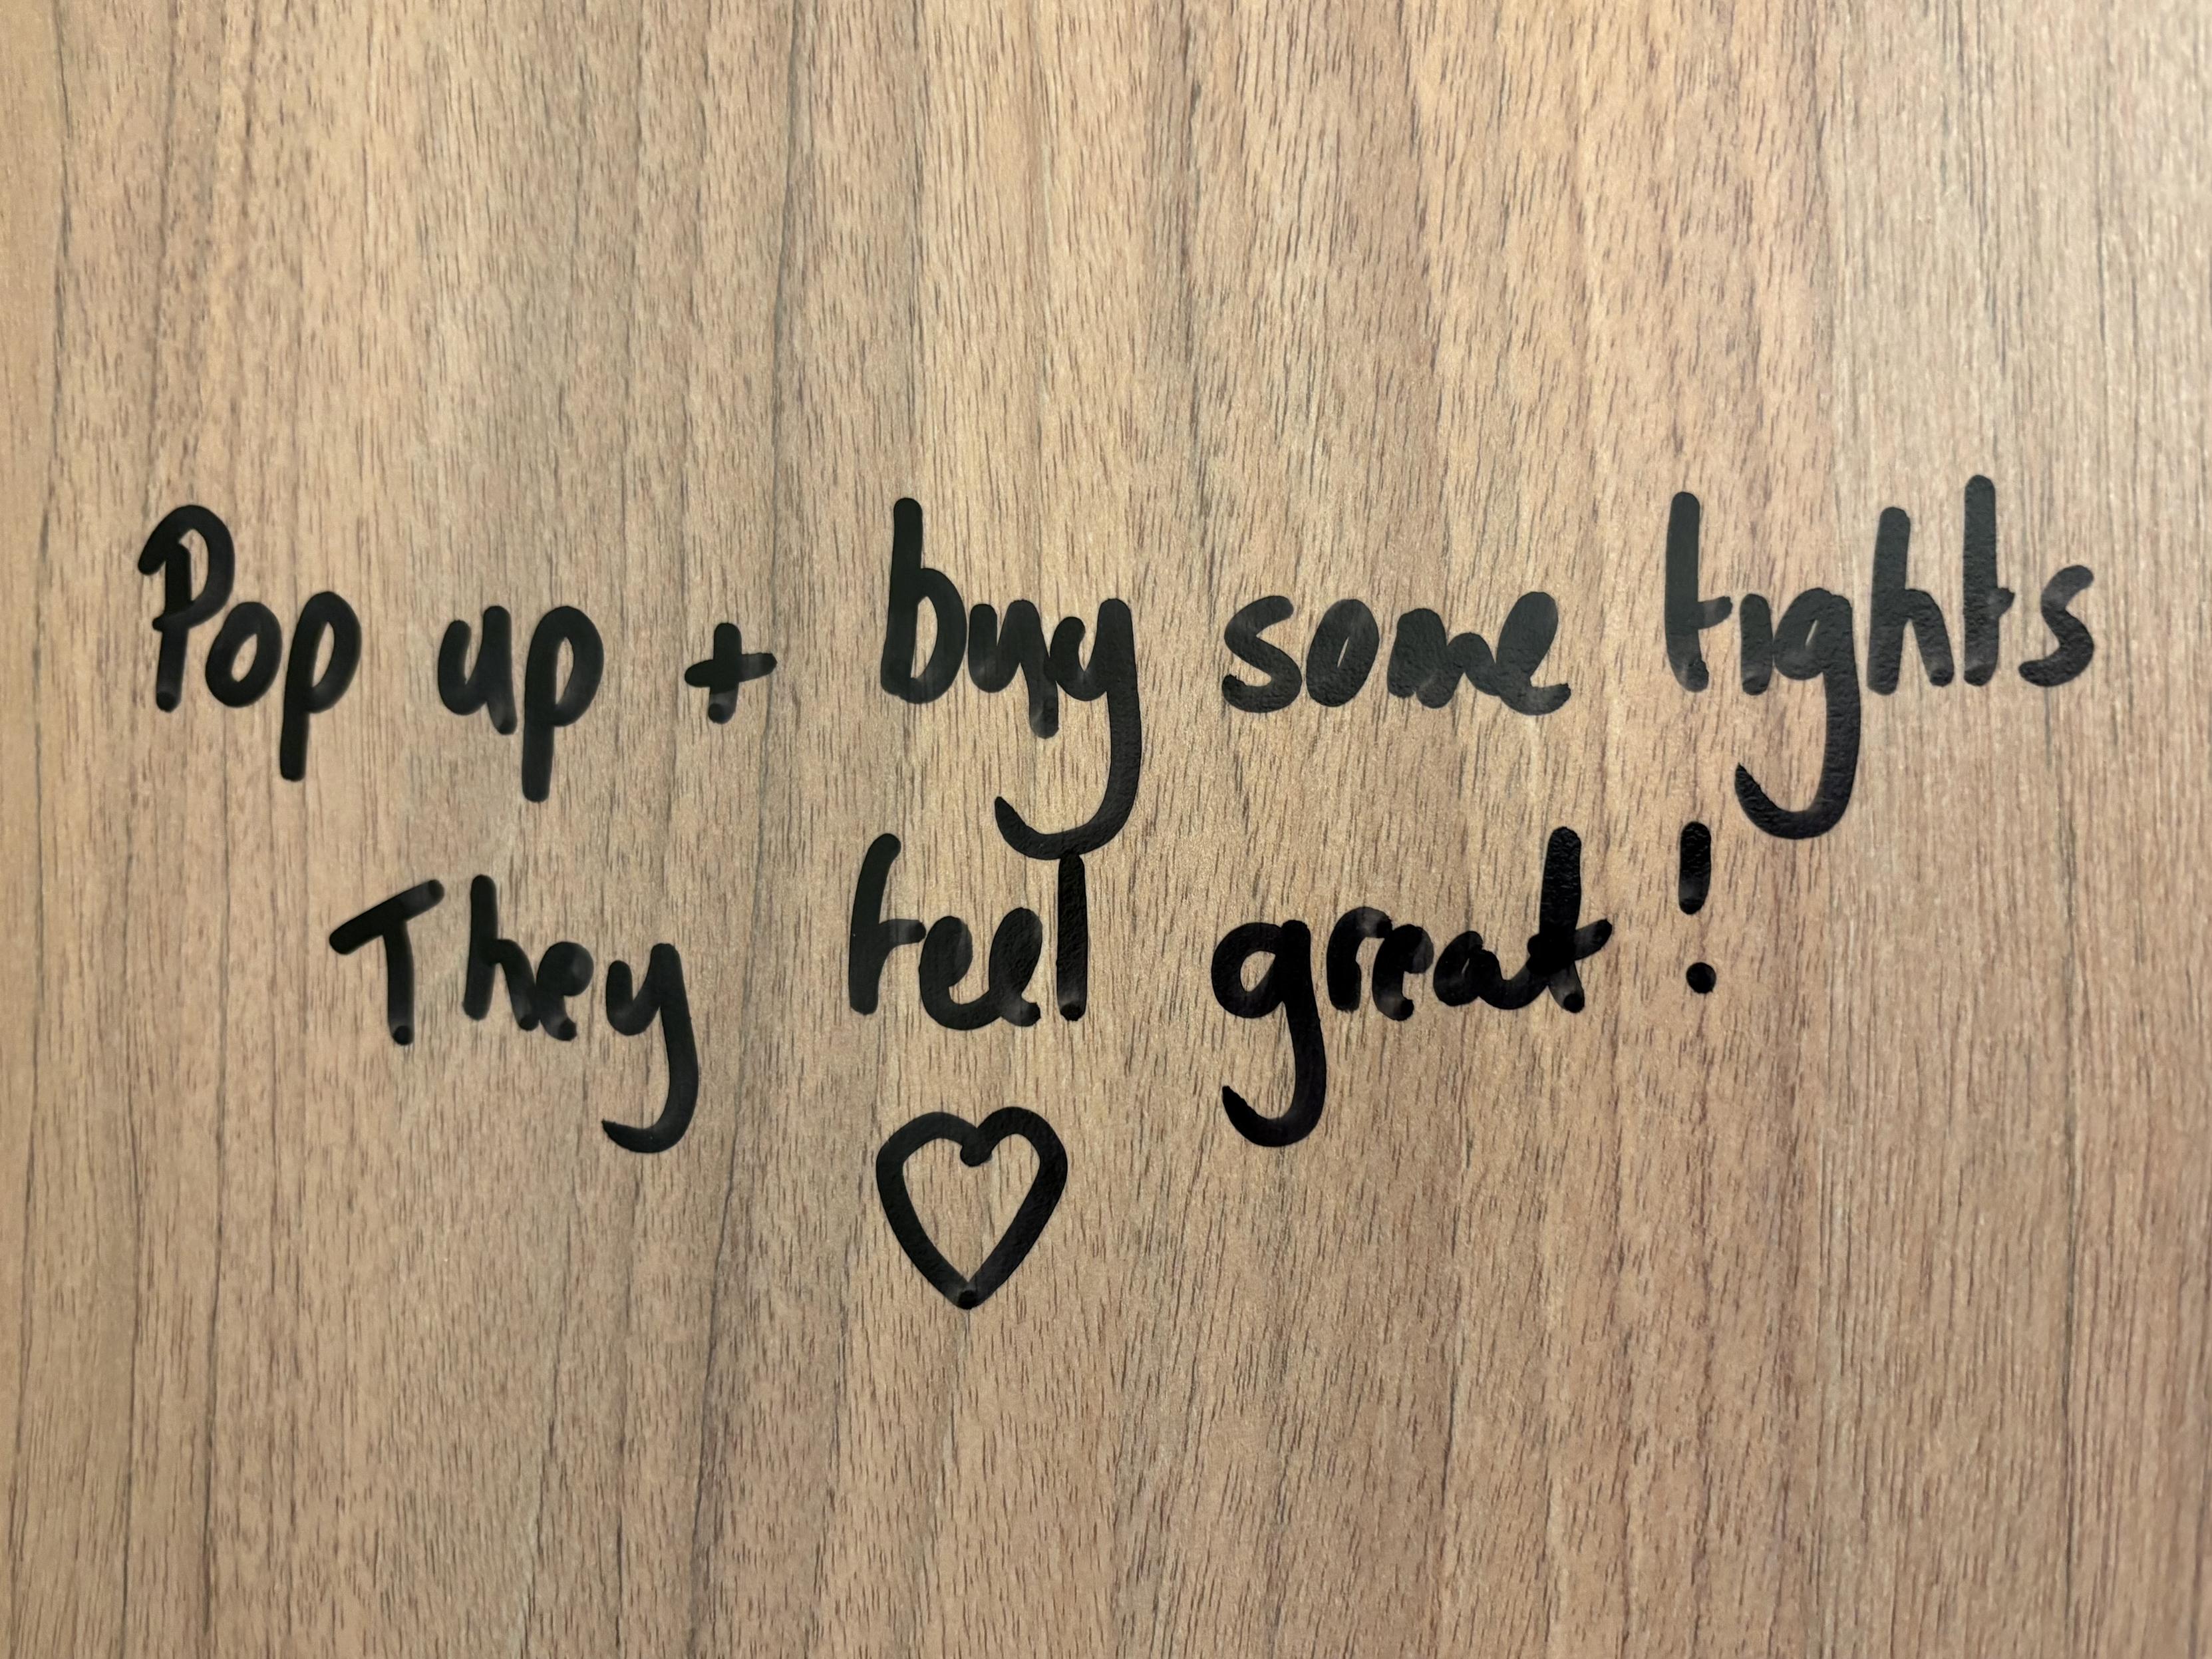 Pop up + buy some tights
They feel great!
♡